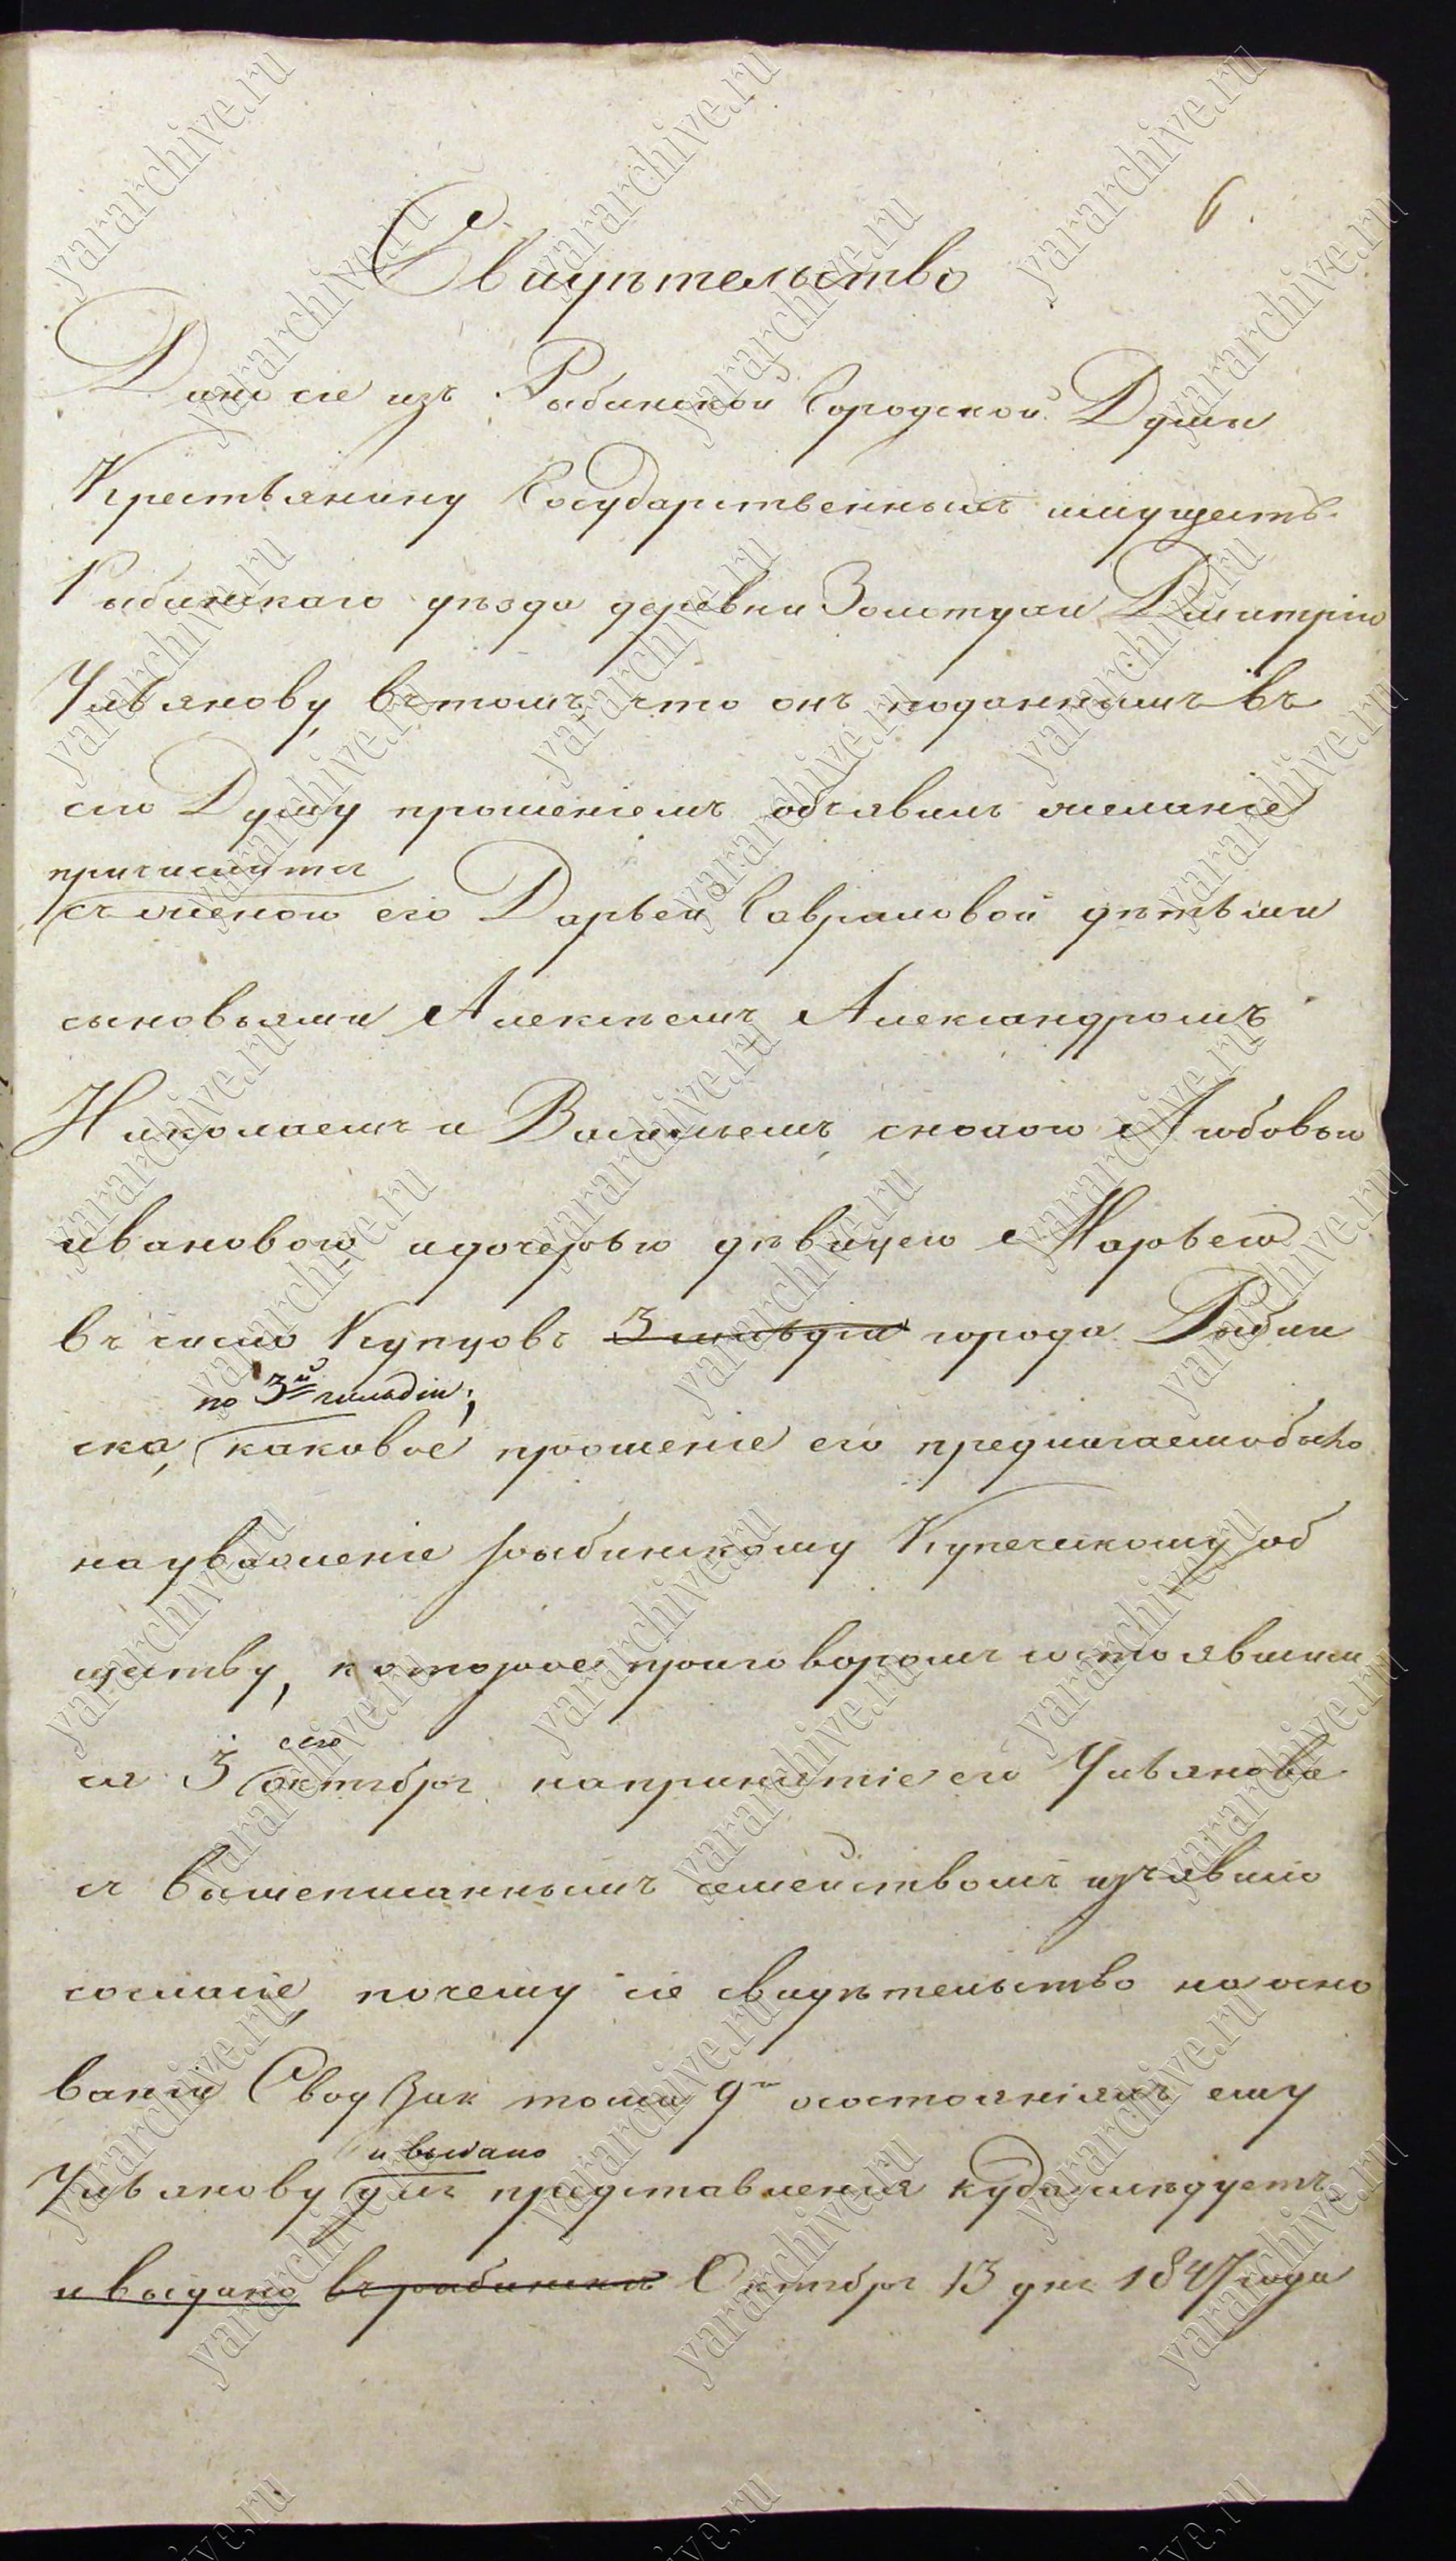 6.
Свидѣтельство
Дано сіе изъ Рыбинской Городской Думы
Крестьянину Государственныхъ имуществъ
Рыбинскаго уѣзда деревни Золотухи Дмитрію
Ульянову, въ томъ, что онъ поданнымъ въ
сію Думу прошеніемъ объявилъ желаніе
причислится
съ женою его Дарьей Гавриловой дѣтьми
сыновьями Алексѣемъ Александромъ
Николаемъ и Васильемъ, снохою Любовью
Ивановою и дочерью дѣвицею Марьею
въ число Купцовъ 3 гильдіи города Рыбин
по 3й гильдіи;
ска, каковое прошеніе его предлагаемо было
на уваженіе рыбинскому Купеческому об
ществу, которое приговоромъ состоявшим
ся 3 октября на принятіе его Ульянова
сего
съ вышеписаннымъ семействомъ изъявило
согласіе, почему сіе свидѣтельство на осно
ваніи Свод Зак тома 9го о состояніяхъ ему
и выдано
Ульянову для представленія куда слѣдуетъ
и выдано въ рыбинскѣ Октября 13 дня 1847 года
yararchive.ru